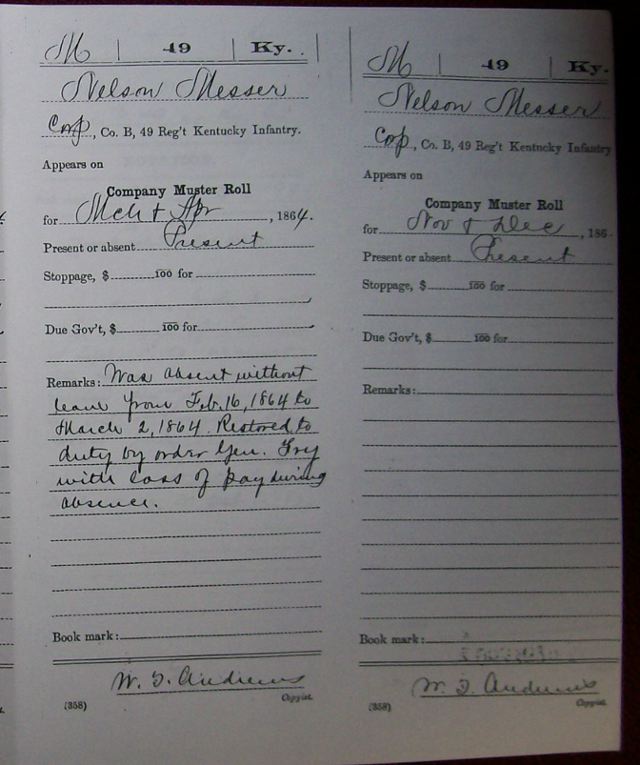 M | 49 | Ky.
Nelson Messer
Corp, Co. B, 49 Reg't Kentucky Infantry.
Appears on
Company Muster Roll
for Mch & Apr, 1864.
Present or absent Present
Stoppage, $ 100 for
Due Gov't, $ 100 for
Remarks: Was absent without
leave from Feb. 16, 1864 to
March 2, 1864. Restored to
duty by order Gen. Fry
with loss of pay during
absence.
Book mark:
W. T. Andrews
Copyist.
(358)
M | 49 | Ky.
Nelson Messer
Corp, Co. B, 49 Reg't Kentucky Infantry
Appears on
Company Muster Roll
for Nov & Dec, 186
Present or absent Present
Stoppage, $ 100 for
Due Gov't, $ 100 for
Remarks:
Book mark:
W. T. Andrews
Copyist.
(358)